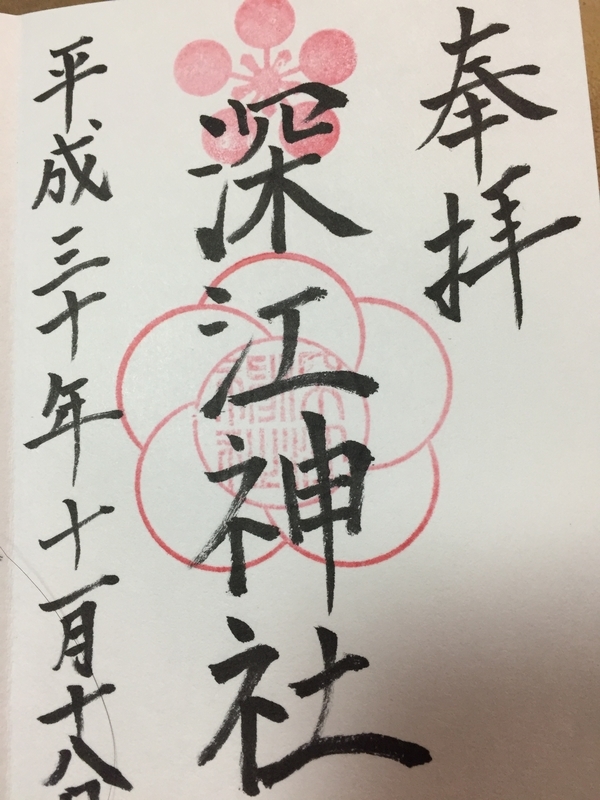 奉拝
深江神社
平成三十年十一月十八日